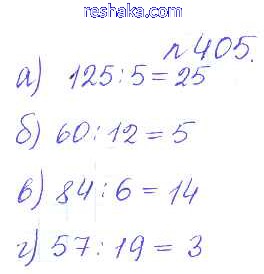 reshaka.com
№405.
а) 125:5=25
б) 60:12=5
в) 84:6=14
г) 57:19=3